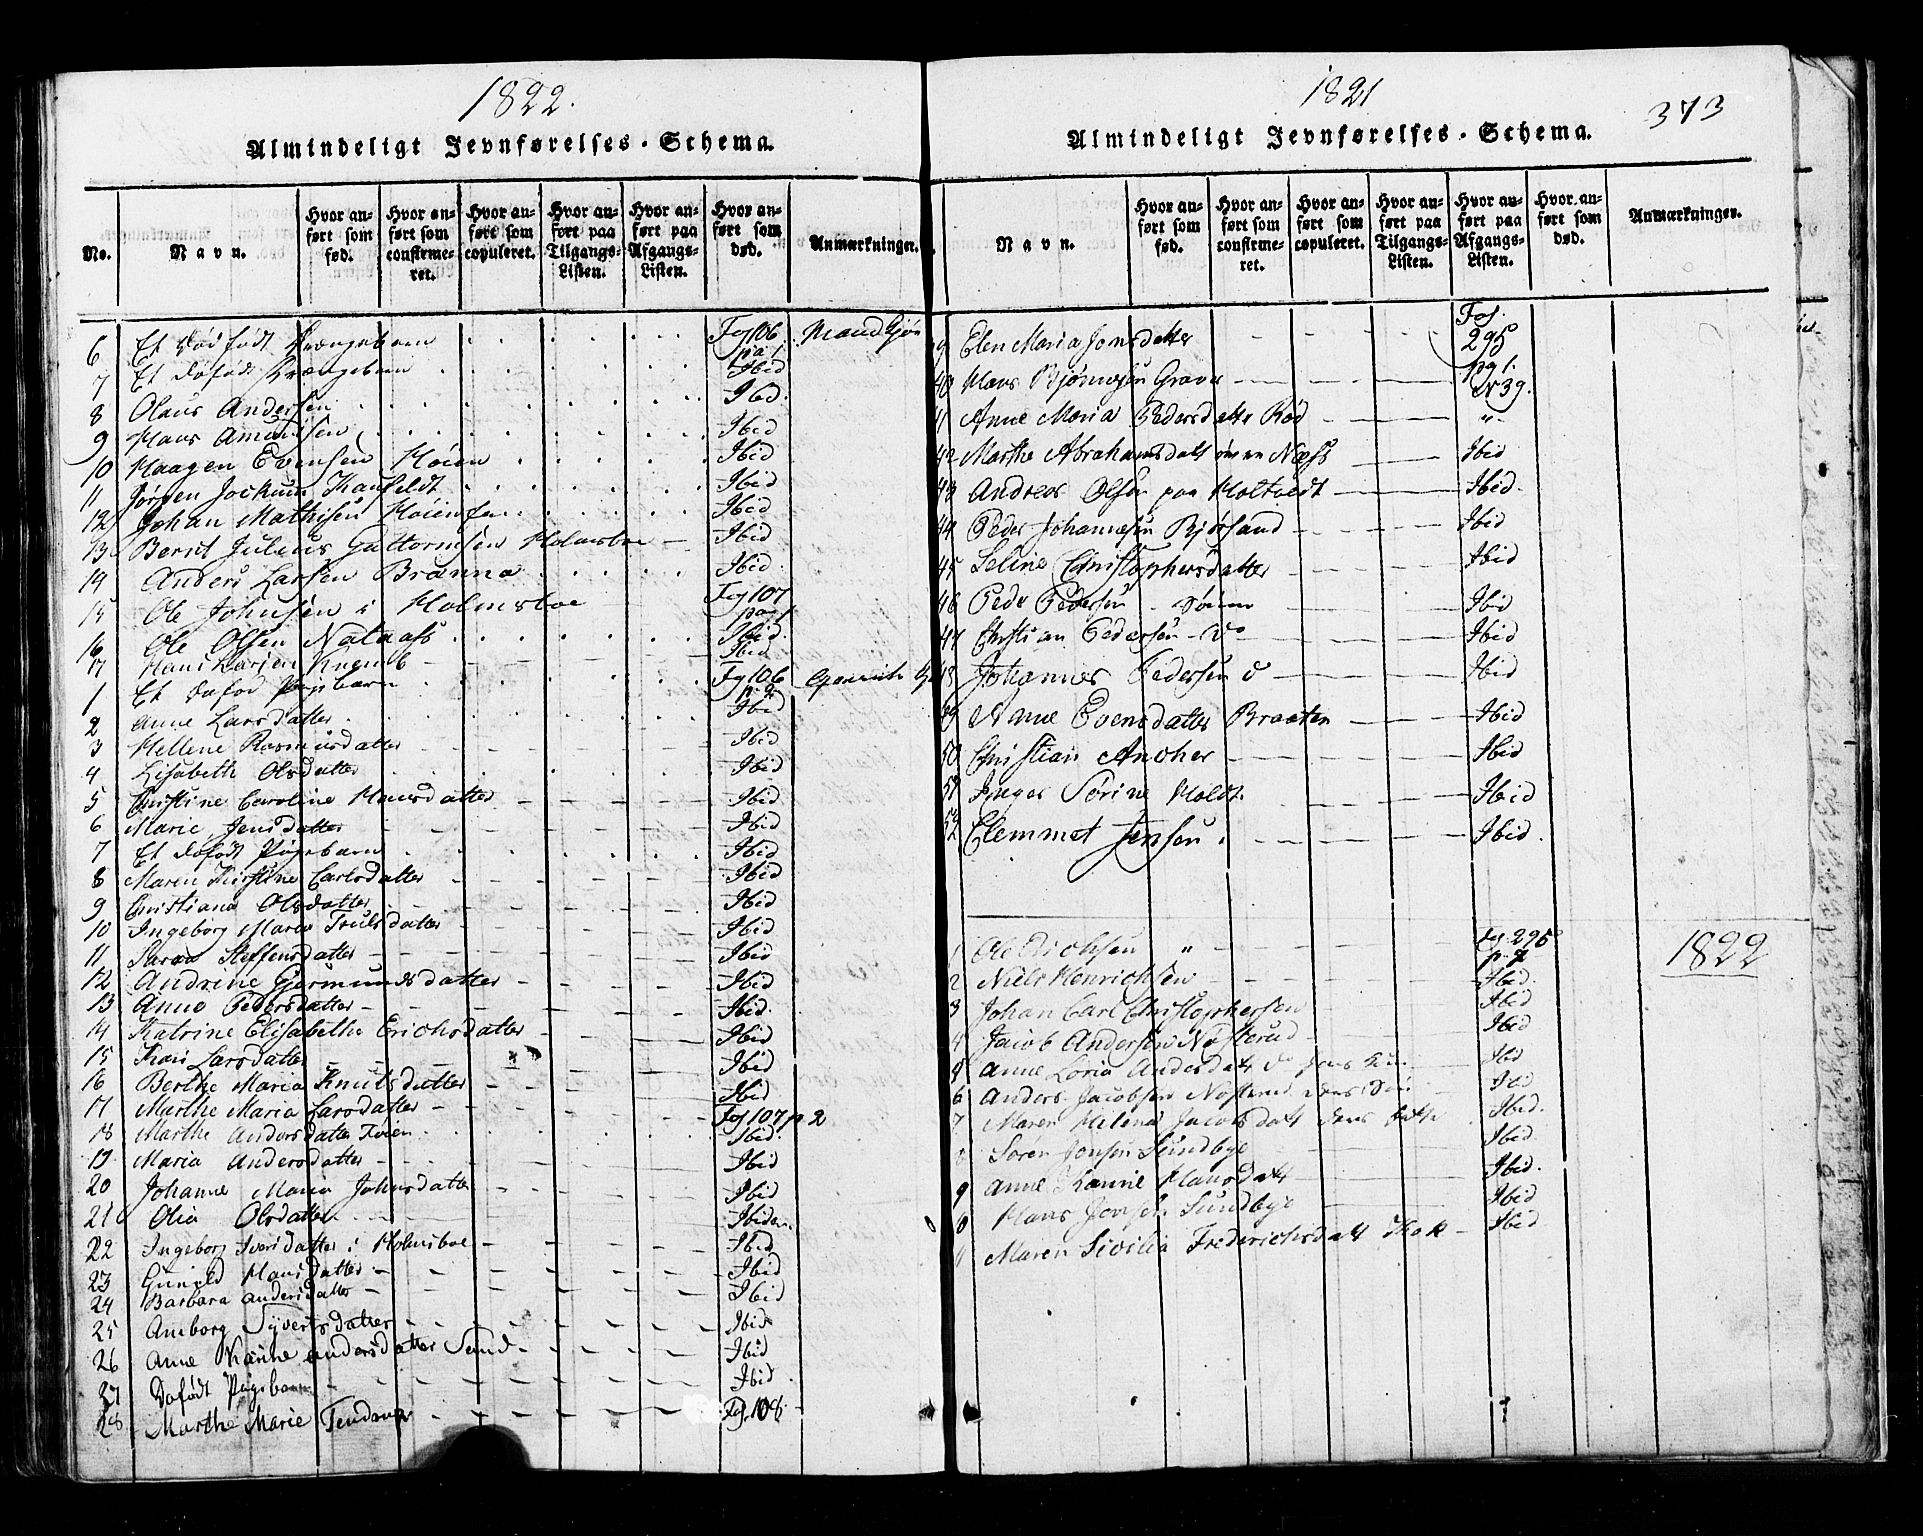 1822.
Almindeligt Jevnførelses-Schema.
No.
Navn.
Hvor anført som fød.
Hvor anført som confirmeret.
Hvor anført som copuleret.
Hvor anført paa Tilgangs-Listen.
Hvor anført paa Afgangs-Listen.
Hvor anført som død.
Anmærkninger.
6 Et Død født Drængebarn Fog 106 Mandkjøn
pa 1
7 Et Døfødt Drængebarn Ibid
8 Olaus Andersen Ibd.
9 Hans Amundsen Ibid
10 Haagen Evensen Höien Ibid
11 Jørgen Jockum Kanfeldt Ibid
12 Johan Mathisen Höiensen Ibid
13 Bernt Julius Guttormsen Holmsboe Ibid
14 Anders Larsen Brænna Ibid
15 Ole Johnsen i Holmsboe Fog 107
pag 1
16 Ole Olsen Ibid
17 Hans Larsen Ibid
1 Et Døfød Pigebarn Fog 106
p 2
2 Anne Larsdatter Ibid
3 Hellene Rasmusdatter Ibid
4 Lisabeth Olsdatter Ibid
5 Christine Caroline Hansdatter Ibid
6 Marie Jensdatter Ibid
7 Et Døfødt Pigebarn Ibid
8 Maren Kirstine Carlsdatter Ibid
9 Christiana Olsdatter Ibid
10 Ingeborg Maria Trulsdatter Ibid
11 Steffensdatter Ibid
12 Andrine Germundsdatter Ibid
13 Anne Pedersdatter Ibid.
14 Katrine Elisabethe Erichsdatter Ibid
15 Kari Larsdatter Ibid
16 Berthe Maria Knutsdatter Ibid
17 Marthe Maria Larsdatter Fog 107 p 2
18 Marthe Andersdatter Ibid.
19 Maria Andersdatter Ibid
20 Johanne Maria Johnsdatter Ibid
21 Olia Olsdatter Ibidem
22 Ingeborg Iversdatter i Holmsboe Ibid
23 Gunild Hansdatter Ibid
24 Barbara Andersdatter Ibid
25 Anborg Syvertsdatter Ibid
26 Anne Andersdatter Sand Ibid
27 Dofødt Pigebarn Ibid
28 Marthe Marie Fog. 108
1821
373
Almindeligt Jevnførelses-Schema.
Navn.
Hvor anført som fød.
Hvor anført som confirmeret.
Hvor anført som copuleret.
Hvor anført paa Tilgangs-Listen.
Hvor anført paa Afgangs-Listen.
Hvor anført som død.
Anmærkninger.
9 Elen Maria Jonsdatter Fol. 295
40 Hans Bjørnesen Graver pag 1. N 39.
41 Anne Maria Pedersdatter Röd "
42 Marthe Abrahamsdatt Næss Ibid
43 Andreas Olsen paa Holtvedt Ibid.
44 Peder Johannesen Bjørsand Ibid
45 Seline Christophersdatter Ibid
46 Peder Pedersen Ibid
47 Christian Pedersen Do Ibid
48 Johannes Pedersen d Ibid
49 Anne Evensdatter Braaten Ibid
50 Christian Ancher Ibid
51 Inger Sörine Holdt Ibid
52 Clemmet Jensen Ibid.
1822
1 Ole Erichsen " Fog 295
p. 2
2 Niels Henrichsen Ibid.
3 Johan Carl Christophersen Ibid
4 Jacob Andersen Nøsterud Ibid
5 Anne Andersdatt Ibd
6 Anders Jacobsen Nøsterud Ibid
7 Maren Helena Jacobsdatt Ibid.
8 Søren Jonsen Sundbye Ibid
9 Anne Karine Hansdatt Ibid.
0 Hans Jonsen Sundbye Ibid
11 Maren Sicilia Frederichsdatt Ibid